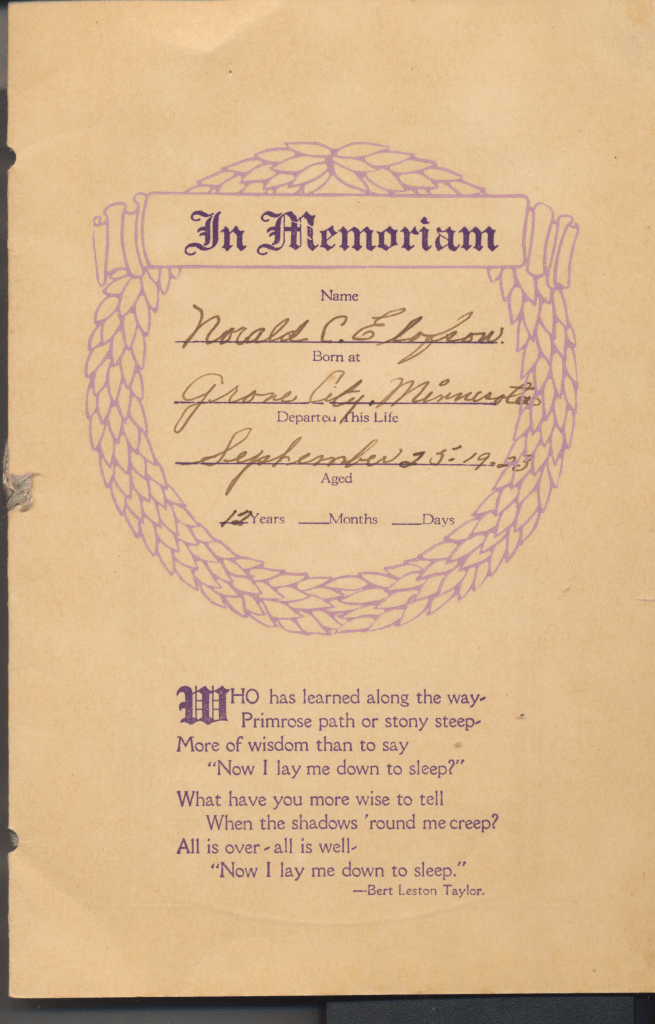 In Memoriam
Name
Norald C. Elofson.
Born at
Grove City, Minnesota
Departed This Life
September 25-1923
Aged
12 Years ___Months ___Days
WHO has learned along the way-
Primrose path or stony steep-
More of wisdom than to say
"Now I lay me down to sleep?"
What have you more wise to tell
When the shadows 'round me creep?
All is over - all is well-
"Now I lay me down to sleep."
—Bert Leston Taylor.